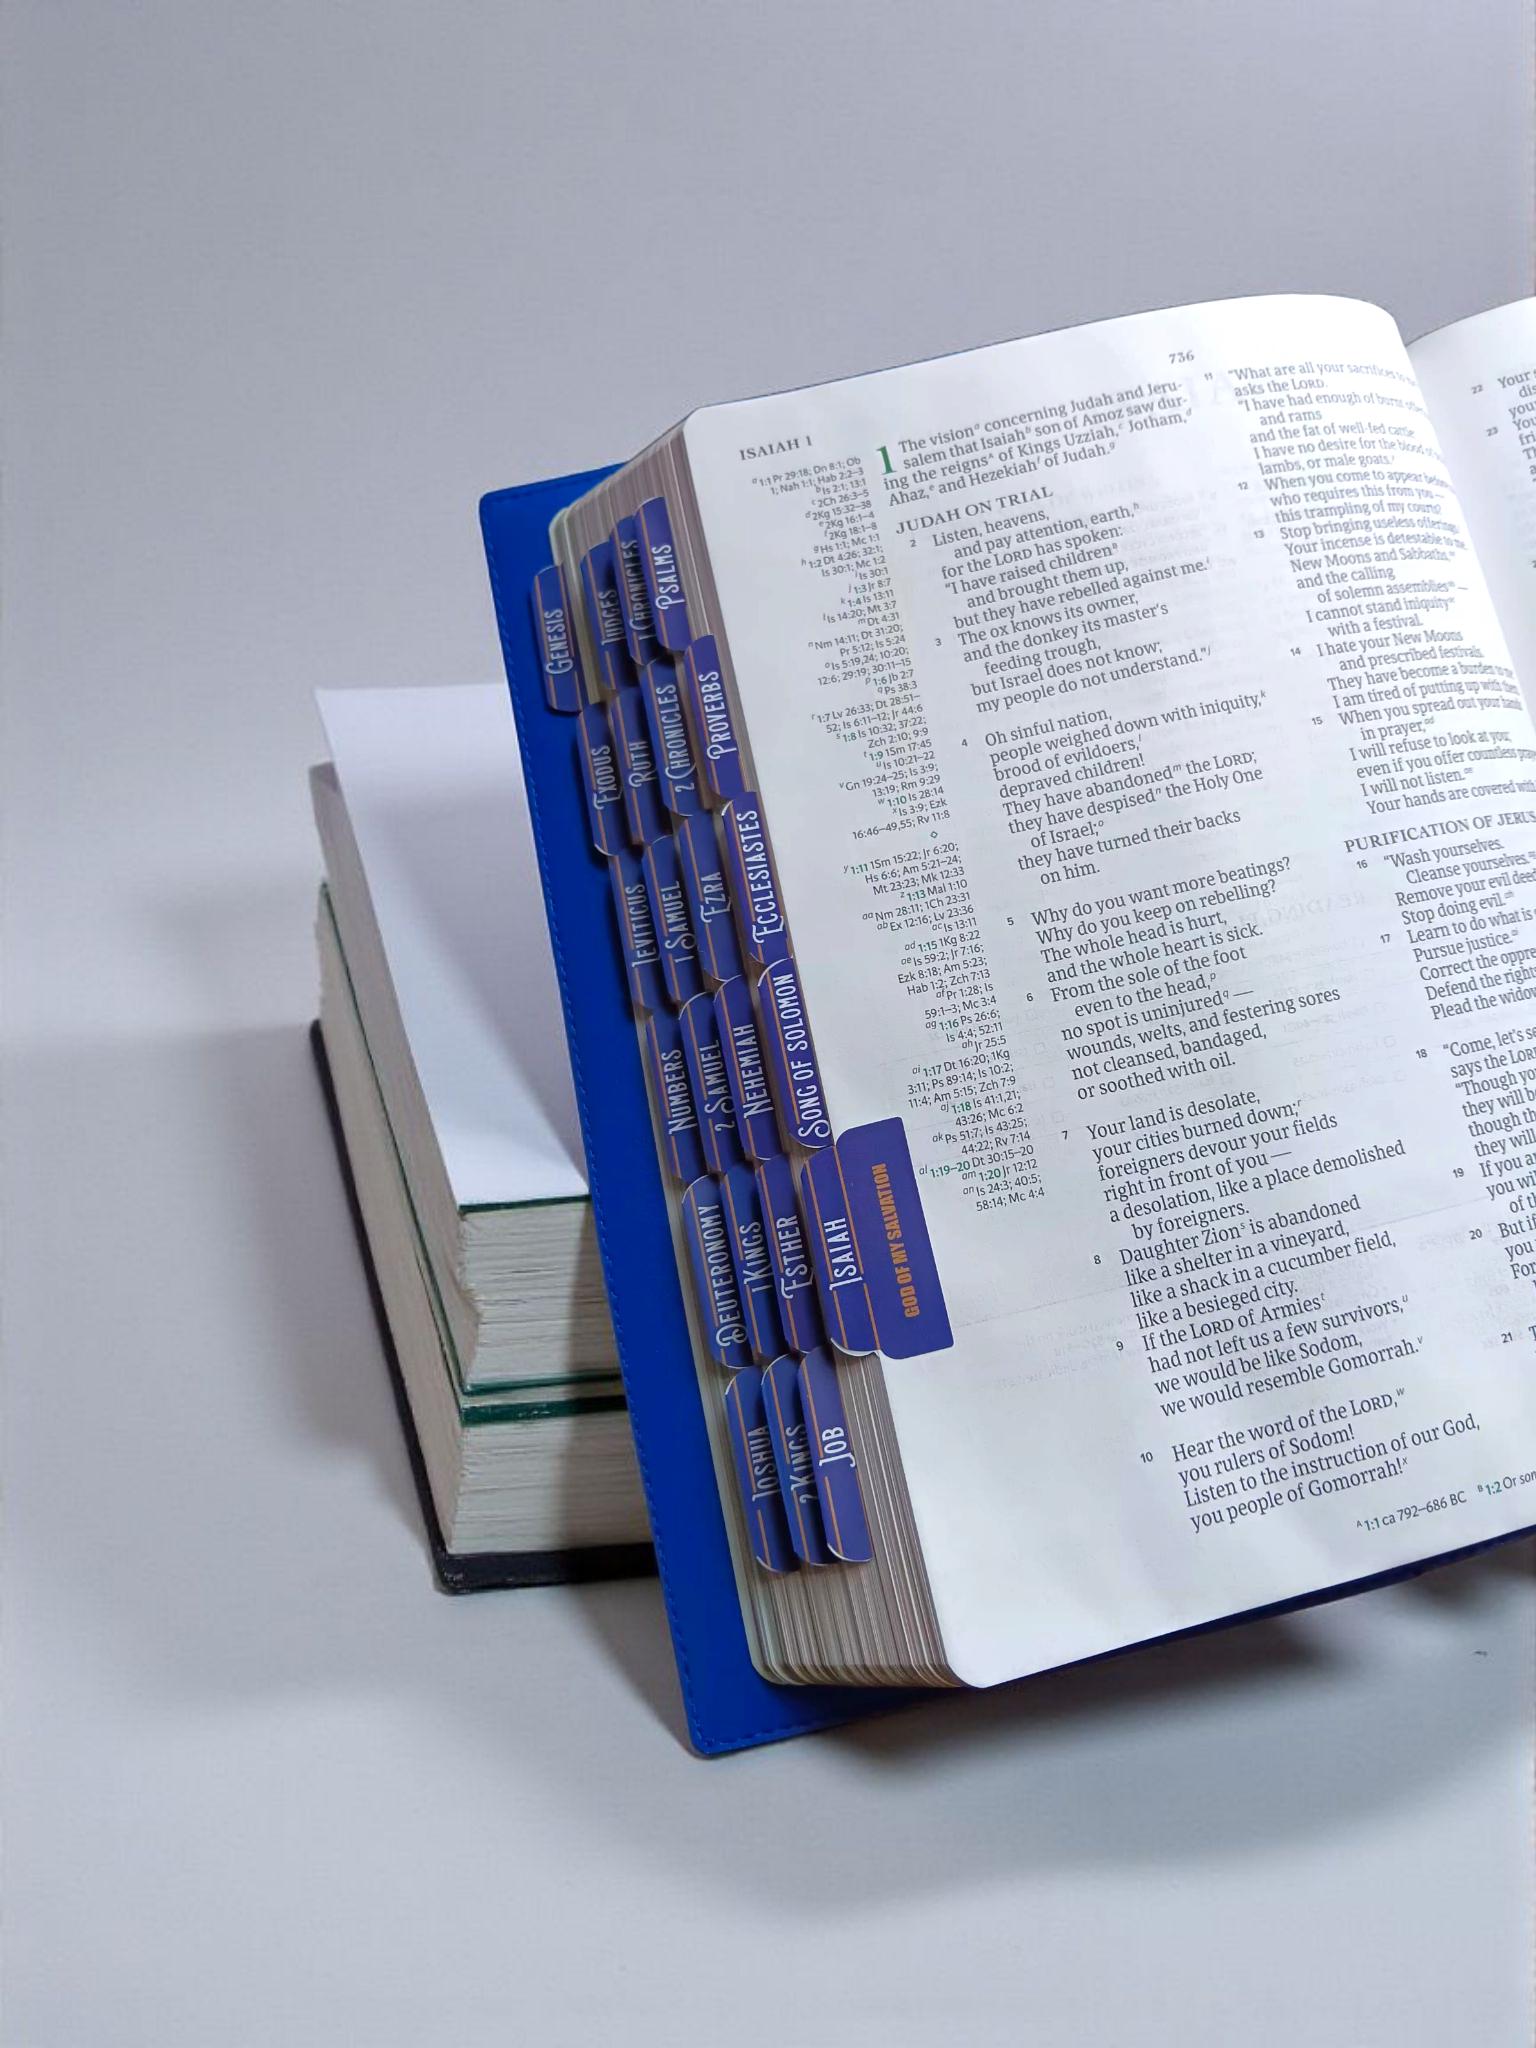 736
ISAIAH 1
GENESIS
EXODUS
LEVITICUS
NUMBERS
DEUTERONOMY
JOSHUA
JUDGES
RUTH
1 SAMUEL
2 SAMUEL
1 KINGS
2 KINGS
1 CHRONICLES
2 CHRONICLES
EZRA
NEHEMIAH
ESTHER
JOB
PSALMS
PROVERBS
ECCLESIASTES
SONG OF SOLOMON
ISAIAH
GOD OF MY SALVATION
a 1:1 Pr 29:18; Dn 8:1; Ob
1; Nah 1:1; Hab 2:2–3
b Is 2:1; 13:1
c 2Ch 26:3–5
d 2Kg 15:32–38
e 2Kg 16:1–4
f 2Kg 18:1–8
g Hs 1:1; Mc 1:1
h 1:2 Dt 4:26; 32:1;
Is 30:1; Mc 1:2
i Is 30:1
j 1:3 Jr 8:7
k 1:4 Is 13:11
l Is 14:20; Mt 3:7
m Dt 4:31
n Nm 14:11; Dt 31:20;
Pr 5:12; Is 5:24
o Is 5:19,24; 10:20;
12:6; 29:19; 30:11–15
p 1:6 Jb 2:7
q Ps 38:3
r 1:7 Lv 26:33; Dt 28:51–
52; Is 6:11–12; Jr 44:6
s 1:8 Is 10:32; 37:22;
Zch 2:10; 9:9
t 1:9 1Sm 17:45
u Is 10:21–22
v Gn 19:24–25; Is 3:9;
13:19; Rm 9:29
w 1:10 Is 28:14
x Is 3:9; Ezk
16:46–49,55; Rv 11:8
y 1:11 1Sm 15:22; Jr 6:20;
Hs 6:6; Am 5:21–24;
Mt 23:23; Mk 12:33
z 1:13 Mal 1:10
aa Nm 28:11; 1Ch 23:31
ab Ex 12:16; Lv 23:36
ac Is 13:11
ad 1:15 1Kg 8:22
ae Is 59:2; Jr 7:16;
Ezk 8:18; Am 5:23;
Hab 1:2; Zch 7:13
af Pr 1:28; Is
59:1–3; Mc 3:4
ag 1:16 Ps 26:6;
Is 4:4; 52:11
ah Jr 25:5
ai 1:17 Dt 16:20; 1Kg
3:11; Ps 89:14; Is 10:2;
11:4; Am 5:15; Zch 7:9
aj 1:18 Is 41:1,21;
43:26; Mc 6:2
ak Ps 51:7; Is 43:25;
44:22; Rv 7:14
al 1:19–20 Dt 30:15–20
am 1:20 Jr 12:12
an Is 24:3; 40:5;
58:14; Mc 4:4
1 The vision a concerning Judah and Jeru-
salem that Isaiah b son of Amoz saw dur-
ing the reigns A of Kings Uzziah, c Jotham, d
Ahaz, e and Hezekiah f of Judah. g
JUDAH ON TRIAL
2 Listen, heavens,
and pay attention, earth, h
for the LORD has spoken:
"I have raised children B
and brought them up,
but they have rebelled against me. i
3 The ox knows its owner,
and the donkey its master's
feeding trough,
but Israel does not know;
my people do not understand." j
4 Oh sinful nation,
people weighed down with iniquity, k
brood of evildoers, l
depraved children!
They have abandoned m the LORD;
they have despised n the Holy One
of Israel; o
they have turned their backs
on him.
5 Why do you want more beatings?
Why do you keep on rebelling?
The whole head is hurt,
and the whole heart is sick.
6 From the sole of the foot
even to the head, p
no spot is uninjured q —
wounds, welts, and festering sores
not cleansed, bandaged,
or soothed with oil.
7 Your land is desolate,
your cities burned down; r
foreigners devour your fields
right in front of you —
a desolation, like a place demolished
by foreigners.
8 Daughter Zion s is abandoned
like a shelter in a vineyard,
like a shack in a cucumber field,
like a besieged city.
9 If the LORD of Armies t
had not left us a few survivors, u
we would be like Sodom,
we would resemble Gomorrah. v
10 Hear the word of the LORD, w
you rulers of Sodom!
Listen to the instruction of our God,
you people of Gomorrah! x
11 "What are all your sacrifices to
asks the LORD.
"I have had enough of burnt
and rams
and the fat of well-fed cattle;
I have no desire for the blood of
lambs, or male goats.
12 When you come to appear before
who requires this from you —
this trampling of my courts?
13 Stop bringing useless offerings.
Your incense is detestable to me.
New Moons and Sabbaths,
and the calling
of solemn assemblies —
I cannot stand iniquity
with a festival.
14 I hate your New Moons
and prescribed festivals.
They have become a burden to me;
I am tired of putting up with them.
15 When you spread out your hands
in prayer, ad
I will refuse to look at you;
even if you offer countless
I will not listen. ae
Your hands are covered with
PURIFICATION OF
16 "Wash yourselves.
Cleanse yourselves.
Remove your evil
Stop doing evil.
17 Learn to do what is
Pursue justice.
Correct the
Defend the
Plead the
18 "Come, let's
says the
"Though
they will
though
they will
19 If you
you
of
20 But if
you
21
22 Your
23 Your
A 1:1 ca 792–686 BC B 1:2 Or